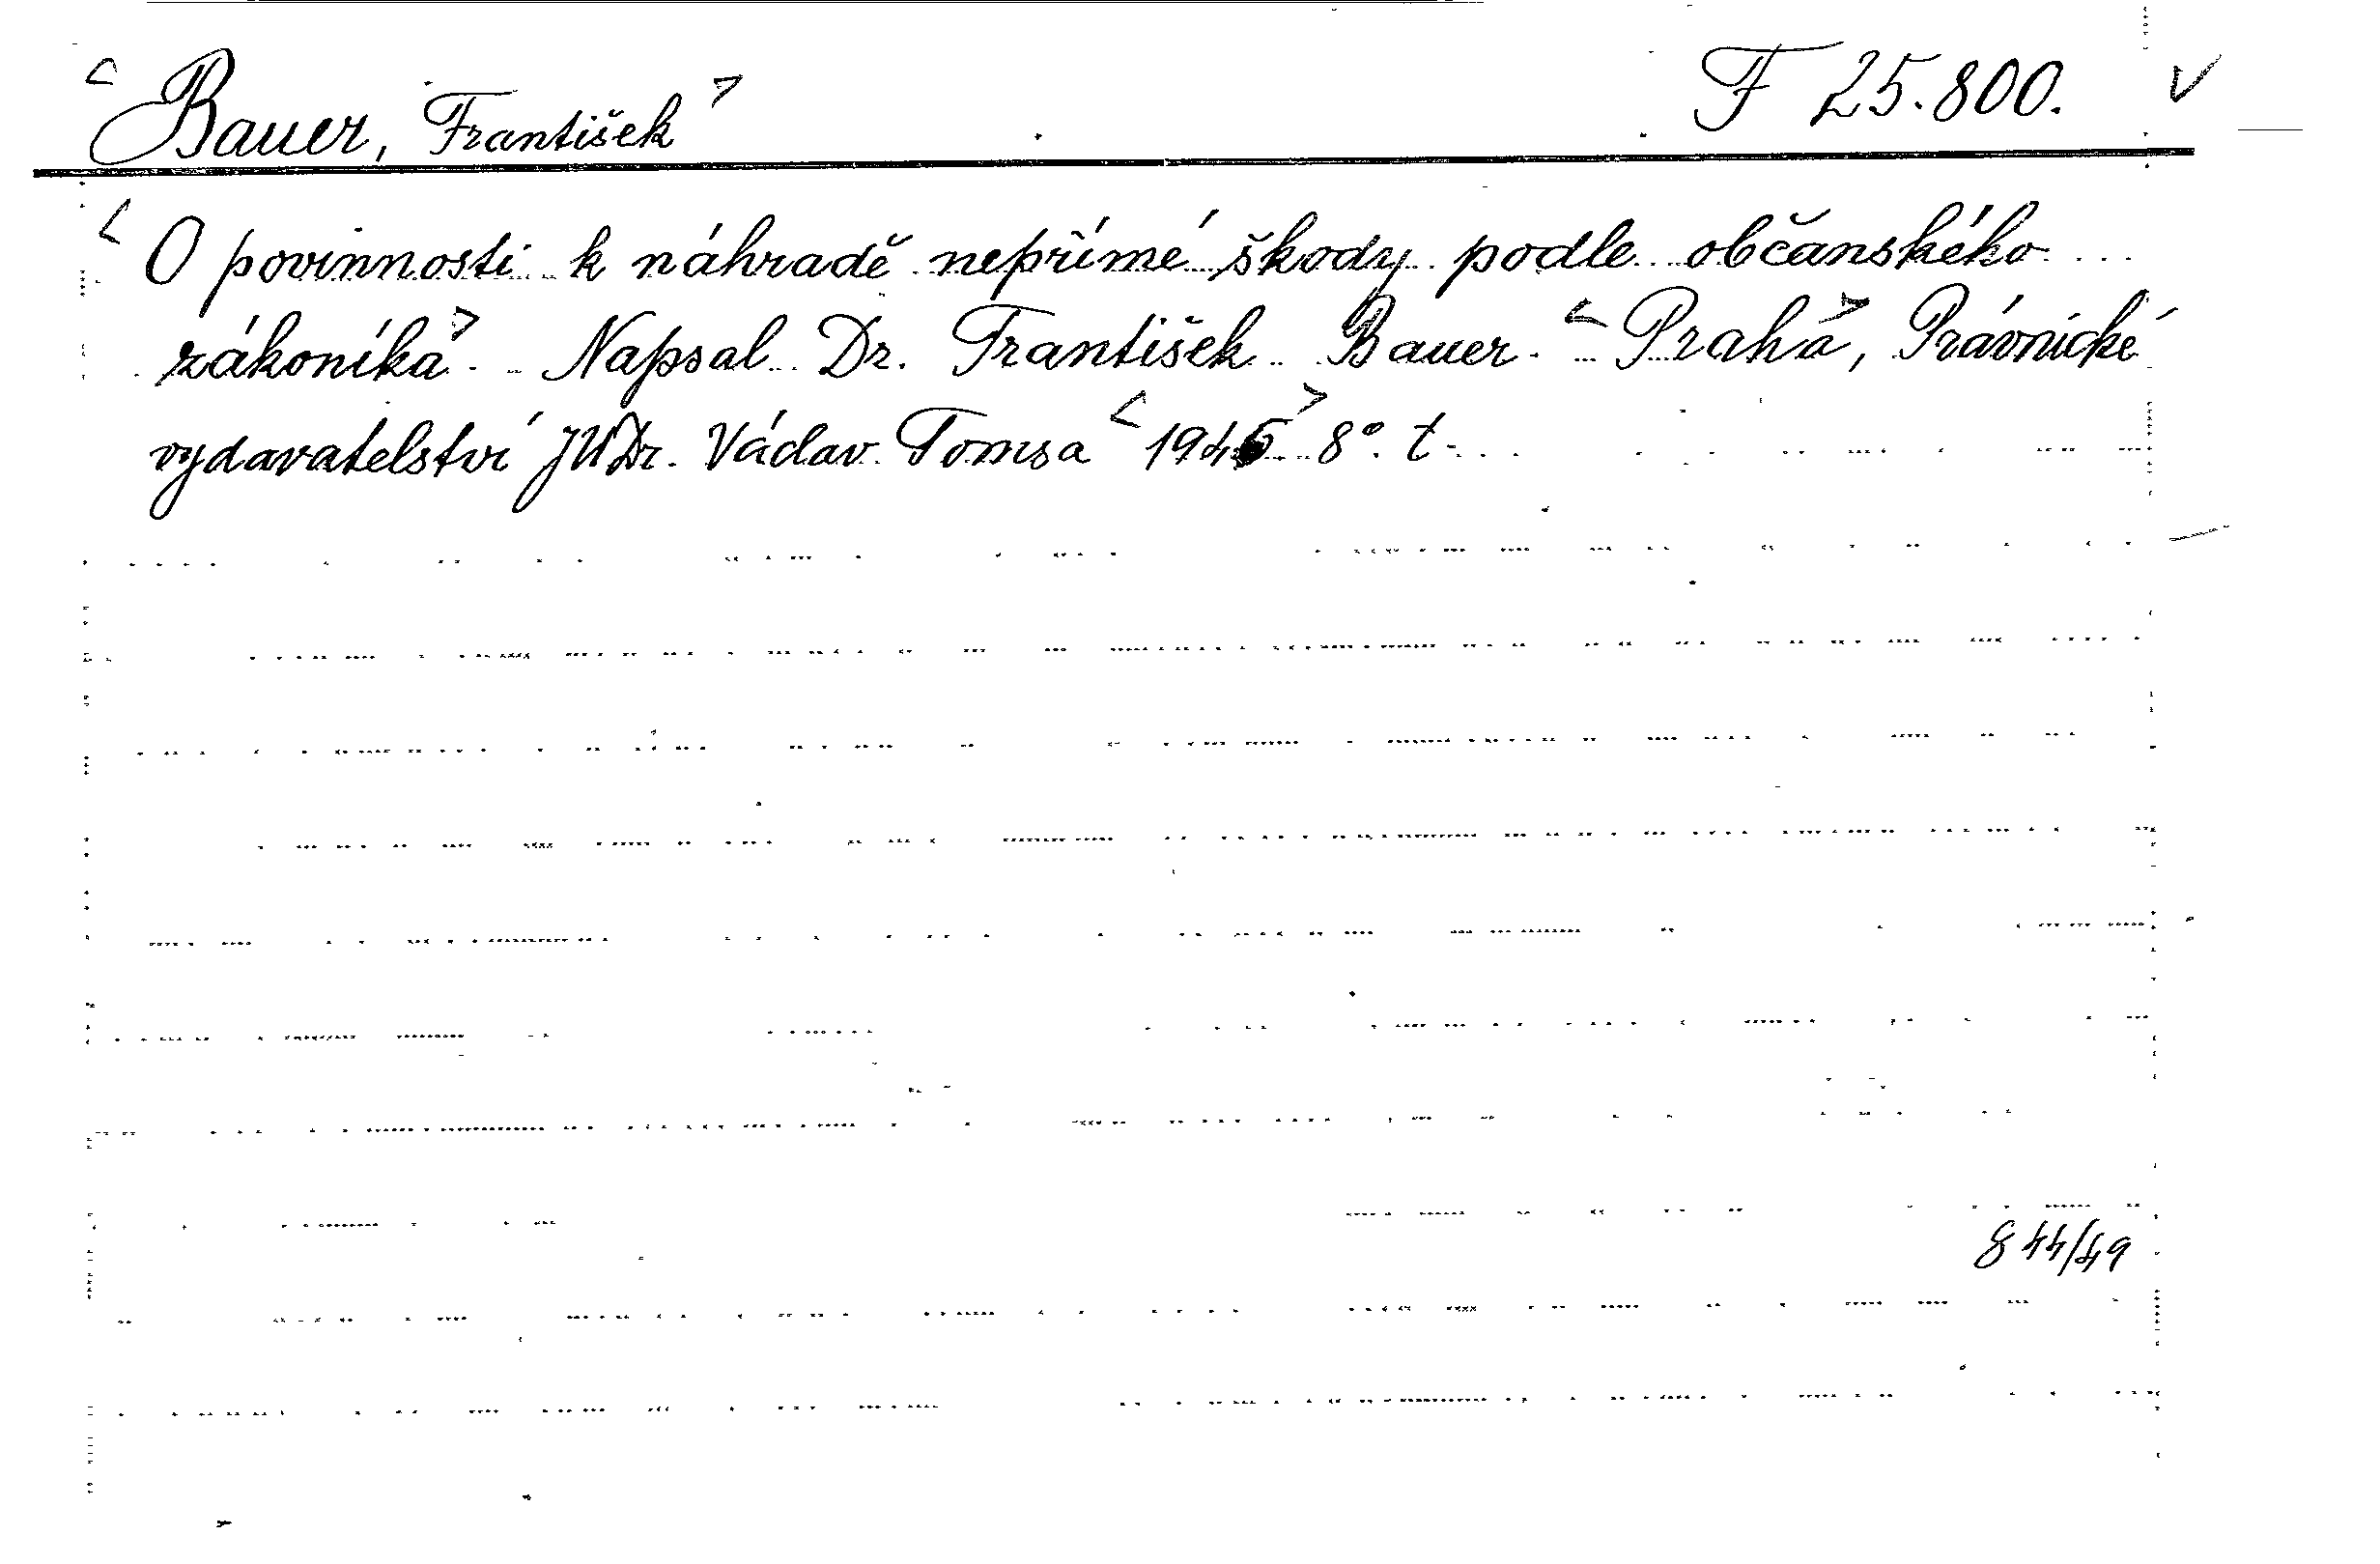 <Bauer, František> F 25.800. V
<O povinnosti k náhradě nepřímé škody podle občanského
zákoníka>. Napsal Dr. František Bauer. <Praha>, Právnické
vydavatelství JUDr. Václav Tomsa <1946> 8°. t.
844/49